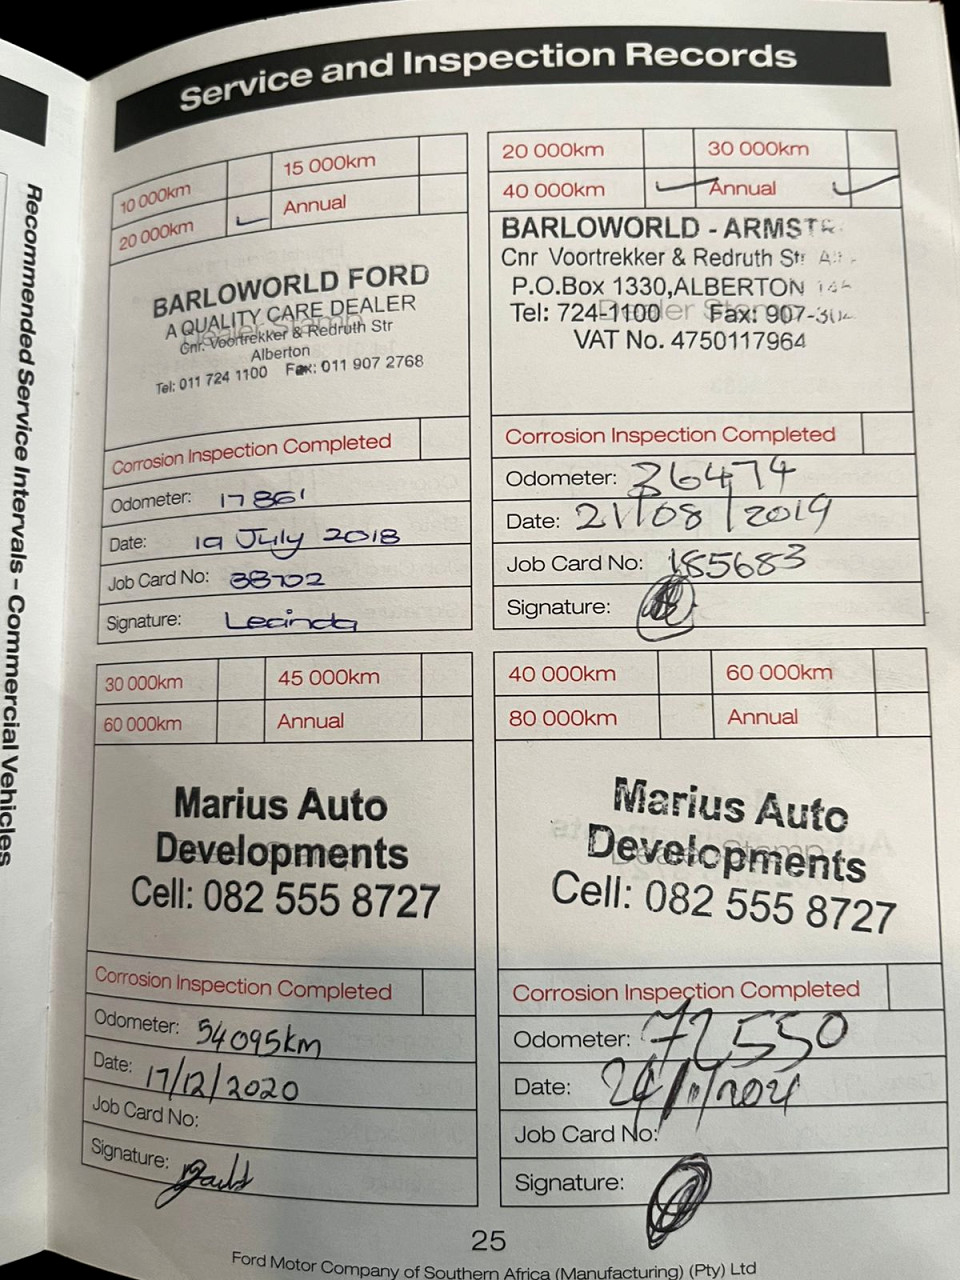 Service and Inspection Records
Recommended Service Intervals – Commercial Vehicles
10 000km 15 000km
20 000km Annual
BARLOWORLD FORD
A QUALITY CARE DEALER
Dealer Stamp
Cnr. Voortrekker & Redruth Str
Alberton
Tel: 011 724 1100 Fax: 011 907 2768
Corrosion Inspection Completed
Odometer: 17861
Date: 19 July 2018
Job Card No: 38702
Signature:
20 000km 30 000km
40 000km Annual
BARLOWORLD - ARMSTR
Cnr Voortrekker & Redruth Str
P.O.Box 1330,ALBERTON
Dealer Stamp
Tel: 724-1100 Fax: 907-
VAT No. 4750117964
Corrosion Inspection Completed
Odometer: 36474
Date: 21/08/2019
Job Card No: 185683
Signature:
30 000km 45 000km
60 000km Annual
Marius Auto
Developments
Cell: 082 555 8727
Corrosion Inspection Completed
Odometer: 54095km
Date: 17/12/2020
Job Card No:
Signature:
40 000km 60 000km
80 000km Annual
Marius Auto
Dealer Stamp
Developments
Cell: 082 555 8727
Corrosion Inspection Completed
Odometer: 72550
Date:
Job Card No:
Signature:
25
Ford Motor Company of Southern Africa (Manufacturing) (Pty) Ltd